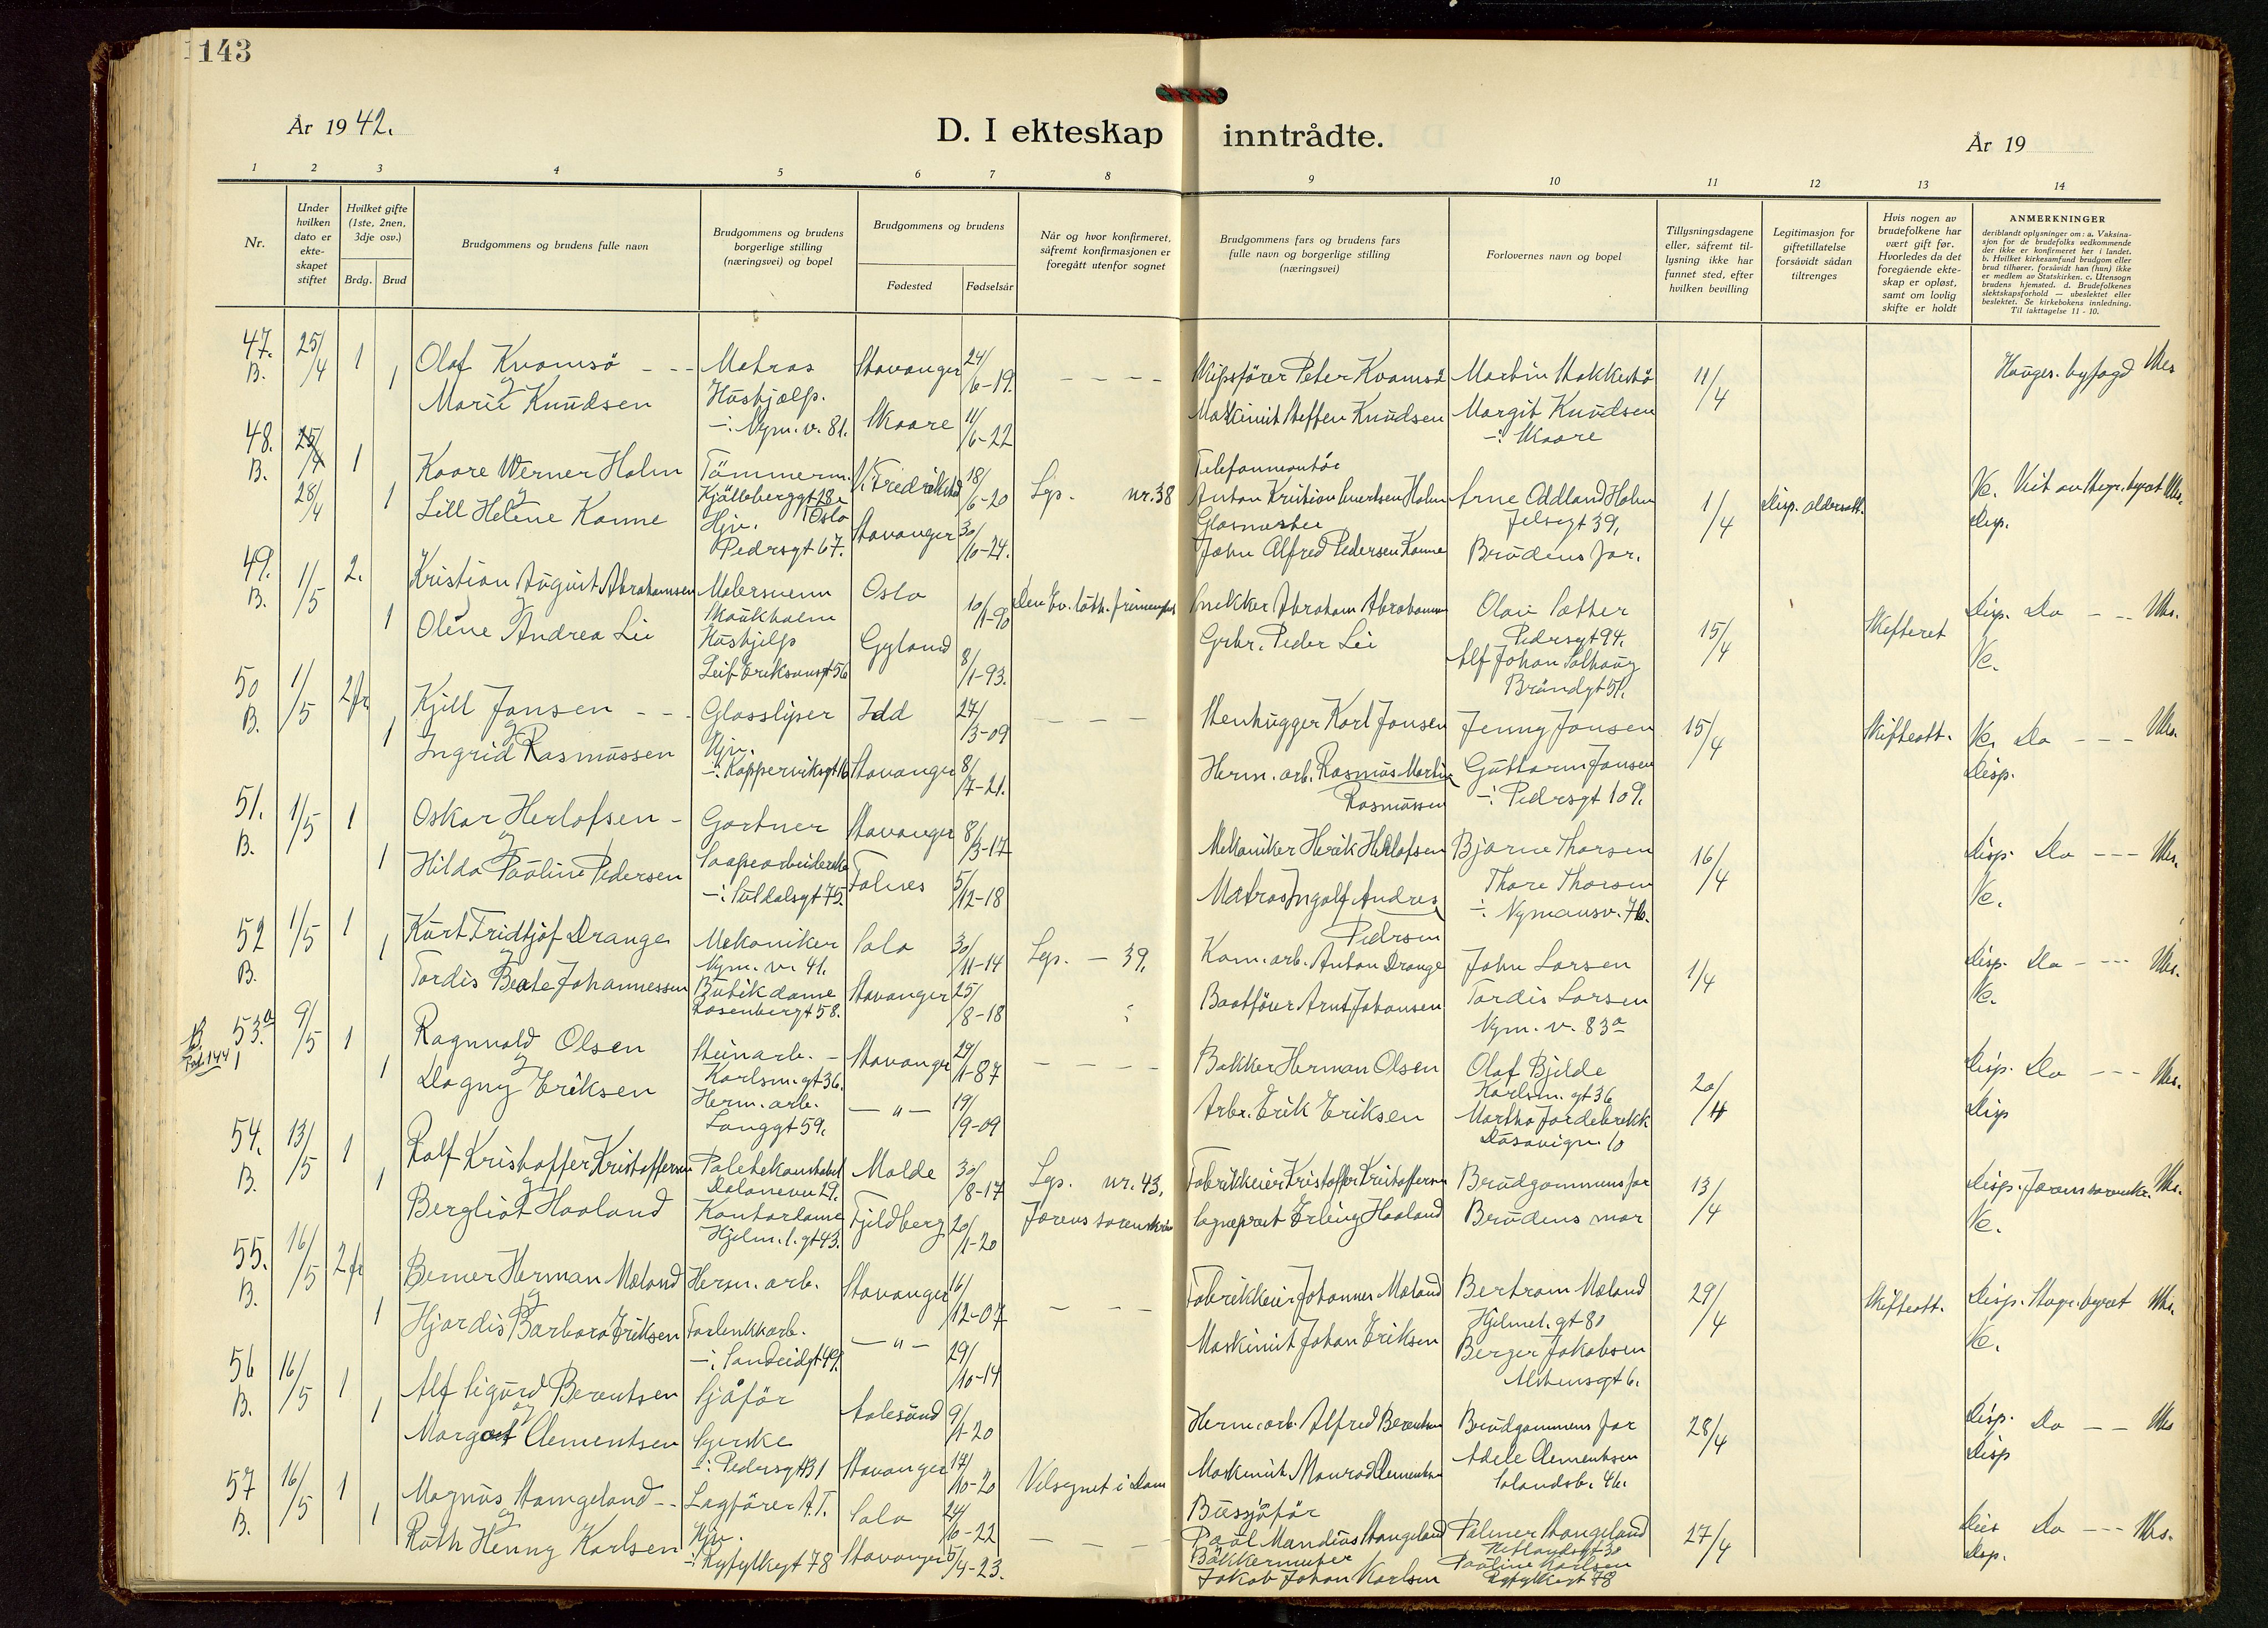 143
År 1942.
D. I ekteskap inntrådte.
År 19
1 2 3 4 5 6 7 8 9 10 11 12 13 14
Nr.
Under hvilken dato er ekte-skapet stiftet
Hvilket gifte (1ste, 2nen, 3dje osv.)
Brdg. Brud
Brudgommens og brudens fulle navn
Brudgommens og brudens borgerlige stilling (næringsvei) og bopel
Brudgommens og brudens
Fødested Fødselsår
Når og hvor konfirmeret, såfremt konfirmasjonen er foregått utenfor sognet
Brudgommens fars og brudens fars fulle navn og borgerlige stilling (næringsvei)
Forlovernes navn og bopel
Tillysningsdagene eller, såfremt til-lysning ikke har funnet sted, efter hvilken bevilling
Legitimasjon for giftetillatelse forsåvidt sådan tiltrenges
Hvis nogen av brudefolkene har vært gift før. Hvorledes da det foregående ekte-skap er opløst, samt om lovlig skifte er holdt
ANMERKNINGER
deriblandt oplysninger om: a. Vaksina-
sjon for de brudefolks vedkommende
der ikke er konfirmeret her i landet.
b. Hvilket kirkesamfund brudgom eller
brud tilhører, forsåvidt han (hun) ikke
er medlem av Statskirken. c. Utensogn
brudens hjemsted. d. Brudefolkenes
slektskapsforhold — ubeslektet eller
beslektet. Se kirkebokens innledning.
Til iakttagelse 11 - 10.
47. 25/4 1 Olaf Kvamsö - -- Matros Stavanger 24/6-19. - - - - Skipsförer Peter Kvamsö Martin Stokkebö 11/4 Hauges. byfogd
B. 1 og Marie Knudsen Hushjelp. -:- Nym. v. 81. Skaare 11/6-22 Maskinist Steffen Knudsen Margit Knudsen -:- Skaare
48. 25/4 1 Kaare Werner Holm Tömmerm. Fredrikstad 18/6-20 Lgs. nr. 38 Telefonmontör
B. 28/4 1 og Lill Helene Kanne Oslo Hjv. Pedersgt 67. Stavanger 30/10-24. Holm Arne Oddland Holm Jelsagt 39. 1/4 Disp. Disp.
Glasmester John Alfred Pedersen Kanne Brudens far.
49. 1/5 2. Kristian August Abrahamsen Malersvenn Oslo 10/1-90 Den Ev. luth. frimenighet Snekker Abraham Abrahamsen Olav Sæther Pedersgt 94. 15/4 Skifteret Disp. Do - --
B. 1 og Olene Andrea Lie Hushjelp Leif Eriksonsgt 56 Gyland 8/1-93. Grbr. Peder Lie Alf Johan Solhaug
50 1/5 2 fr Kjell Jansen - - - Glassliper Idd 27/3-09 - - - Stenhugger Karl Jansen Jenny Jansen 15/4 Skifteatt. Do - - -
B. 1 og Ingrid Rasmussen Hjv. -:- Kopperviksgt 16 Stavanger 8/7-21. Herm. arb. Rasmus Martin Rasmussen Guttorm Jansen -:- Pedersgt 109. Disp.
51. 1/5 1 Oskar Herlofsen - Gartner Stavanger 8/3-17 Mekaniker Henrik Herlofsen Bjarne Thorsen 16/4 Disp. Do ---
B. 1 og Hilda Pauline Pedersen Saapearbeiderske -:- Suldalsgt 75. Falnes 5/12-18 Matros Ingolf Andreas Pedersen Thore Thorsen -:- Nymansv. 76.
52 1/5 1 Kurt Fridtjof Drange Mekaniker Nym. v. 41. Sola 30/11-14 Lgs. - 39. Kom. arb. Anton Drange John Larsen 1/4 Disp. Do - ---
B. 1 og Tordis Beate Johannessen Butikdame Rosenbergt 58. Stavanger 25/8-18 Baatförer Arnt Johansen Tordis Larsen Nym. v. 83a
B. 53a 9/5 1 Ragnvald Olsen Steinarb. - Karlsm. gt 36. Stavanger 29/1-87 - - - - Bakker Herman Olsen Olaf Bjelde Karlsm. gt 36 20/4 Disp. Do ---
Fol. 144 1 1 og Dagny Eriksen Herm. arb. Langgt 59. - " - 19/9-09 Arbr. Erik Eriksen Martha Jordebrekk 10 Disp
54. 13/5 1 Rolf Kristoffer Kristoffersen Molde 30/8-17 Lgs. nr. 43. Fabrikkeier Kristoffer Kristoffersen Brudgommens far 13/4 Disp. Jæren sorenskr.
B. 1 og Bergliot Haaland Kontordame Hjelm. l. gt 43. Fjeldberg 20/1-20 Jærens sorenskriv Sogneprest Erling Haaland Brudens mor
55. 16/5 2 fr Berner Herman Mæland Herm. arb. Stavanger 16/12-07 - - - Fabrikkeier Johannes Mæland Bertram Mæland Hjelmel. gt 80 29/4 Skifteatt. Disp. Stvgr. byret
B. 1 og Hjørdis Barbara Eriksen -:- Sandeidgt 49. - " - 29/10-14 Maskinist Johan Eriksen Berger Jakobsen
56 16/5 1 Alf Sigurd Berentsen Sjåför Aalesund 9/1-20 Herm. arb. Alfred Berentsen Brudgommens far 28/4 Disp. Do - -
B. 1 og Margot Clementsen Syerske -:- Pedersgt 131 Stavanger 17/10-20 Maskinist Monrad Clementsen Adele Clementsen Disp
57 16/5 1 Magnus Stangeland -- Lagförer A.T. Sola 24/6-22 Velsignet i Dom Bussjåför Paul Mandius Stangeland Palmer Stangeland 17/4 Do ---
B. 1 og Ruth Henny Karlsen Hjv. -:- Ryfylkegt 78 Stavanger 5/4-23. - - - - Bakkermester Jakob Johan Karlsen Pauline Karlsen Ryfylkegt 78 Disp.